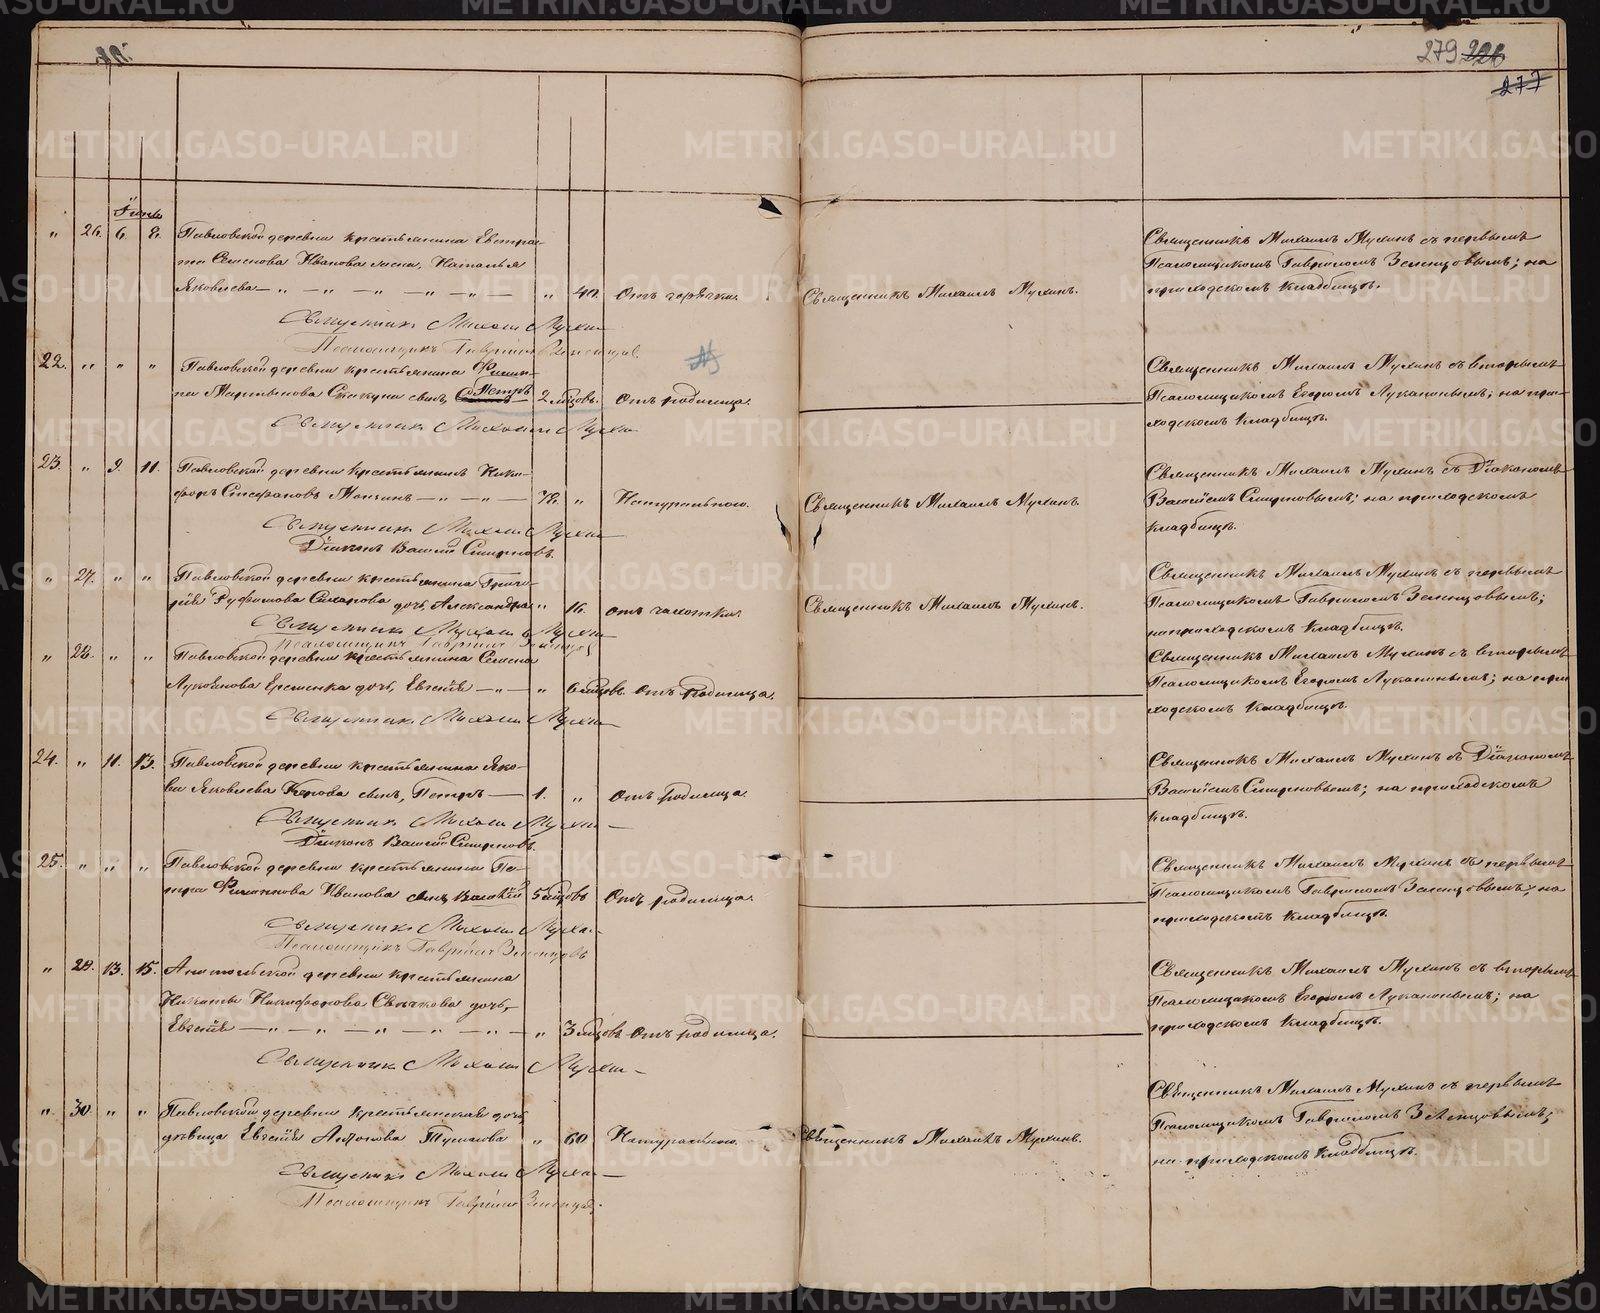 279 226
277
Іюнь
" 26. 6. 8. Павловской деревни крестьянина Евстра-
та Семенова Иванова жена, Наталья
Яковлева — " — " — " — " 40. Отъ горячки. Священникъ Михаилъ Мухинъ.
Священникъ Михаилъ Мухинъ съ первымъ
Псаломщикомъ Гавриломъ Зеленцовымъ; на
приходскомъ кладбищѣ.
Священникъ Михаилъ Мухин
Псаломщикъ Гавриилъ Зеленцов.
22. " " " Павловской деревни крестьянина Филип-
па Мартынова Скакуна сынъ, Петръ 2 мѣсцовъ. Отъ родимца.
Священникъ Михаилъ Мухинъ съ вторымъ
Псаломщикомъ Егоромъ Лукановымъ; на при-
ходскомъ кладбищѣ.
Священник Михаил Мухин
23. " 9. 11. Павловской деревни крестьянинъ Ники-
форъ Стефановъ — " — " — 72. " Натурально. Священникъ Михаилъ Мухинъ.
Священникъ Михаилъ Мухинъ съ Діакономъ
Василіемъ Смирновымъ; на приходскомъ
кладбищѣ.
Священник Михаил Мухин
Діаконъ Василій Смирновъ.
" 27. " " Павловской деревни крестьянина Григо-
рія Сахарова дочь, Александра " 16. Отъ чахотки. Священникъ Михаилъ Мухинъ.
Священникъ Михаилъ Мухинъ съ первымъ
Псаломщикомъ Гавриломъ Зеленцовымъ;
на приходскомъ кладбищѣ.
Священник Михаил Мухин
Псаломщикъ Гавриил Зеленцов
" 28. " " Павловской деревни крестьянина Семена
Лукоянова Еременка дочь, Евгенія — " — " 6 мѣсцовъ. Отъ родимца.
Священникъ Михаилъ Мухинъ съ вторымъ
Псаломщикомъ Егоромъ Лукановымъ; на при
ходскомъ кладбищѣ.
Священник Михаил Мухин
24. " 11. 13. Павловской деревни крестьянина Яко-
ва Яковлева сынъ, Петръ — 1. " Отъ родимца.
Священникъ Михаилъ Мухинъ съ Діакономъ
Василіемъ Смирновымъ; на приходскомъ
кладбищѣ.
Священник Михаил Мухин
Діаконъ Василій Смирновъ.
25. " " " Павловской деревни крестьянина Пе-
тра Филиппова Иванова сынъ Василій 5 мѣсцовъ Отъ родимца.
Священникъ Михаилъ Мухинъ съ первымъ
Псаломщикомъ Гавриломъ Зеленцовымъ; на
приходскомъ кладбищѣ.
Священник Михаил Мухин
Псаломщикъ Гавріилъ Зеленцовъ
" 29. 13. 15. деревни крестьянина
Никиты Никифорова дочь,
Евгенія — " — " — " — " — " — " 3 мѣсцовъ Отъ родимца.
Священникъ Михаилъ Мухинъ съ вторымъ
Псаломщикомъ Егоромъ Лукановымъ; на
приходскомъ кладбищѣ.
Священник Михаил Мухин
" 30. " " Павловской деревни крестьянская дочь,
дѣвица Евгенія " 60 Натурально. Священникъ Михаилъ Мухинъ.
Священникъ Михаилъ Мухинъ съ первымъ
Псаломщикомъ Гавриломъ Зеленцовымъ;
на приходскомъ кладбищѣ.
Священник Михаил Мухин
Псаломщикъ Гавриил Зеленцов.
METRIKI.GASO-URAL.RU